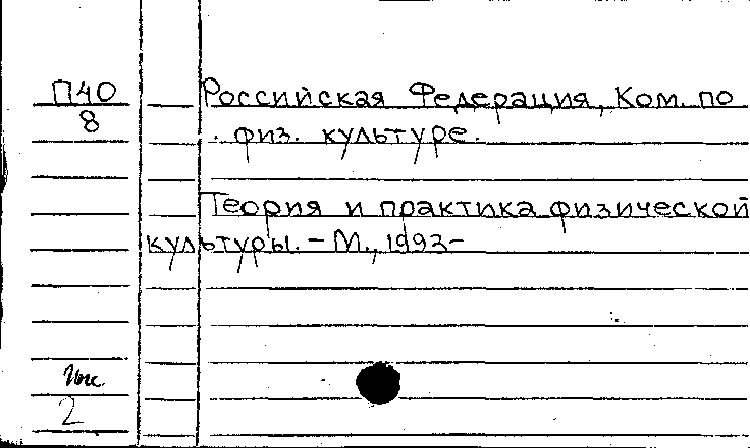 П40
8
Российская Федерация, Ком. по
физ. культуре.
Теория и практика физической
культуры. - М., 1992-
2